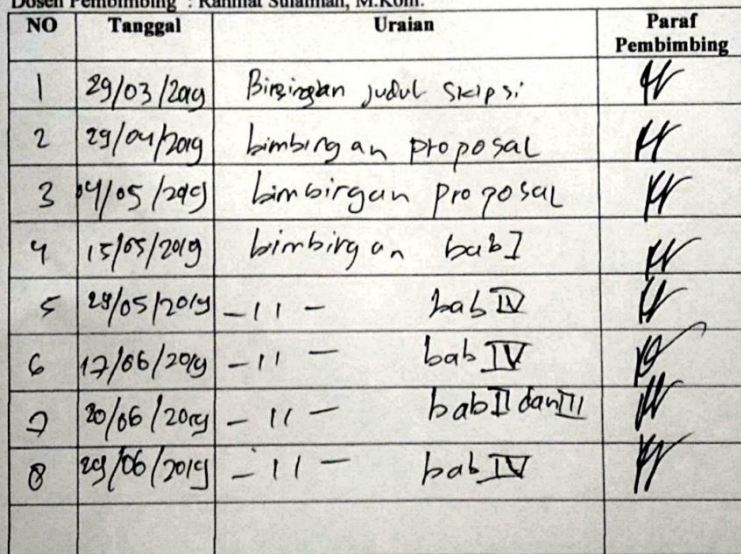 Dosen Pembimbing : Rahmat Sulaiman, M.Kom.
NO Tanggal Uraian Paraf Pembimbing
1 29/03/2019 Birgingban judul Skipsi
2 29/04/2019 bimbingan proposal
3 04/05/2019 bimbirgan proposal
4 15/05/2019 bimbirgan bab I
5 29/05/2019 - 11 - bab IV
6 17/06/2019 - 11 - bab IV
7 20/06/2019 - 11 - bab II dan III
8 29/06/2019 - 11 - bab IV